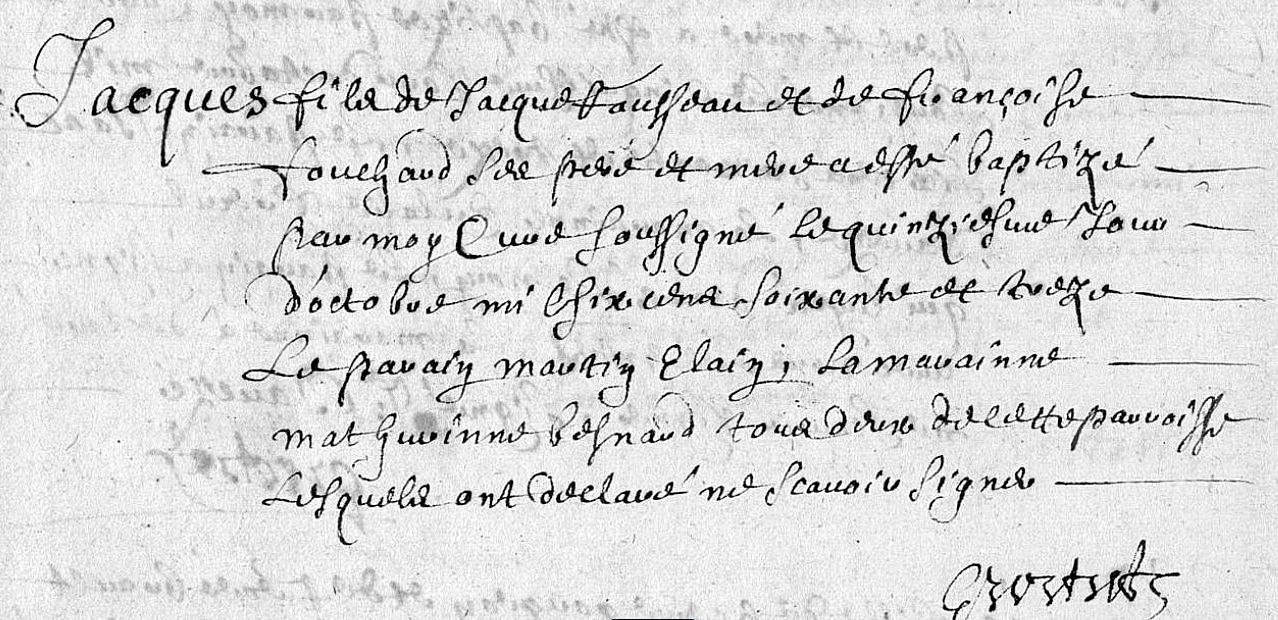 Jacques fils de Jacque Fausseau et de françoise
fouchard ses pere et mere a esté baptizé
par moy Curé soussigné le quinziesme Jour
d'octobre mil six cens soixante et treze
Le parain martin Elain, la marainne
mathurinne besnard tous deux de cette parroisse
Lesquels ont declaré ne scavoir signer